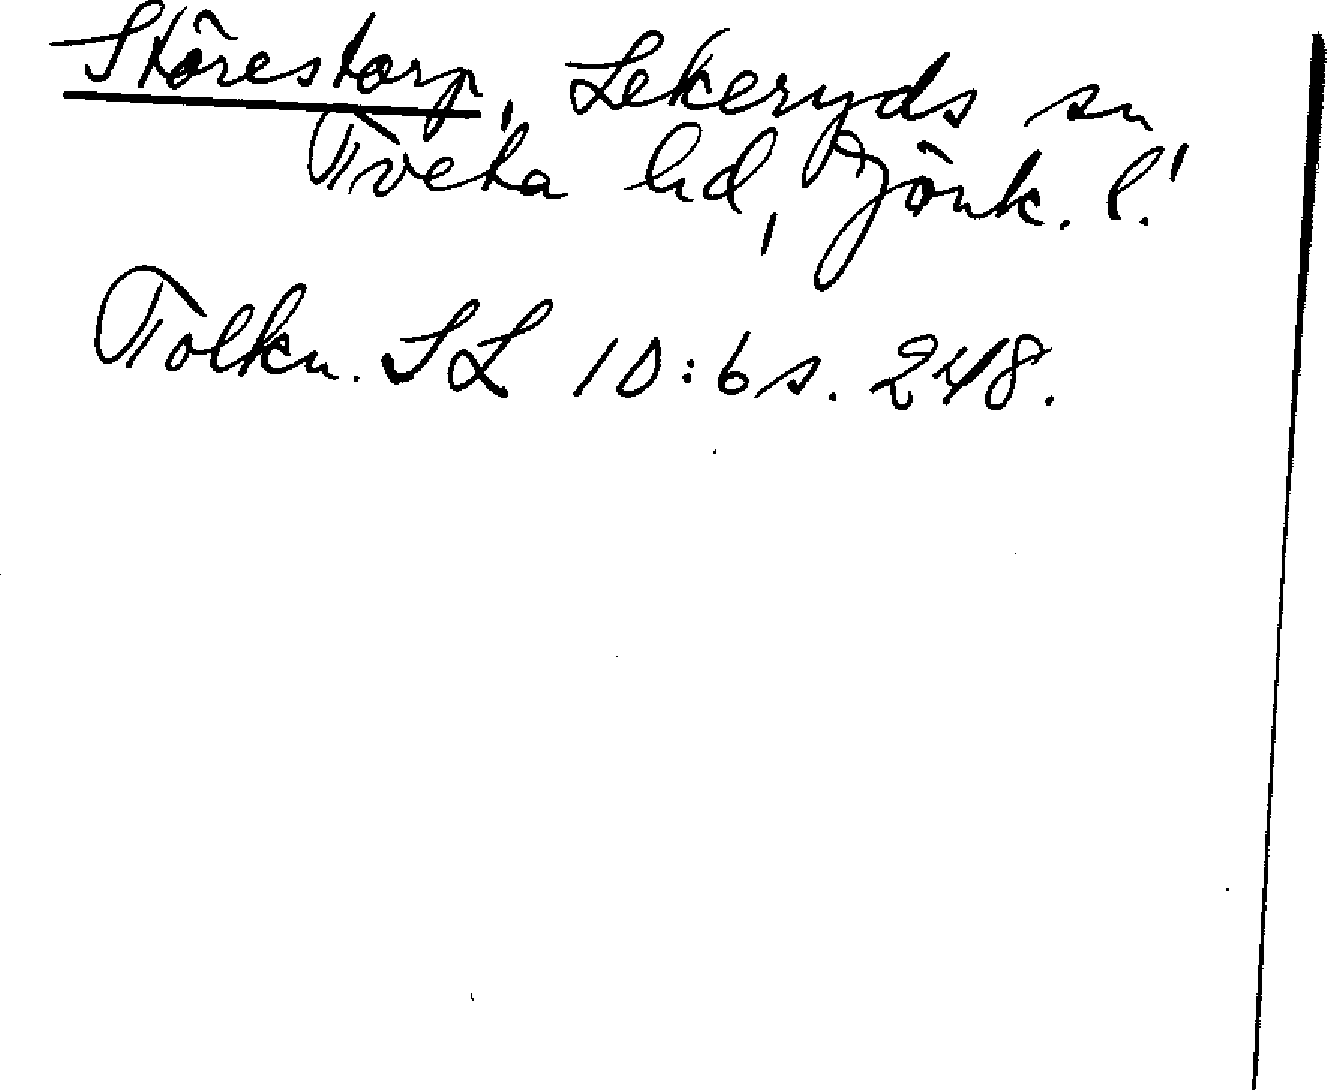 Störestorp, Lekeryds sn,
Tveta hd, Jönk. l.
Tolkn. SL 10:6 s. 248.